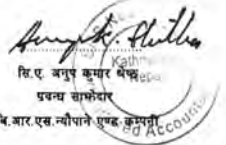 सि.ए. अनुप कुमार श्रेष्ठ
प्रबन्ध साझेदार
बि.आर.एस.न्यौपाने एण्ड कम्पनी
Kathm
Nepal
ed Accou